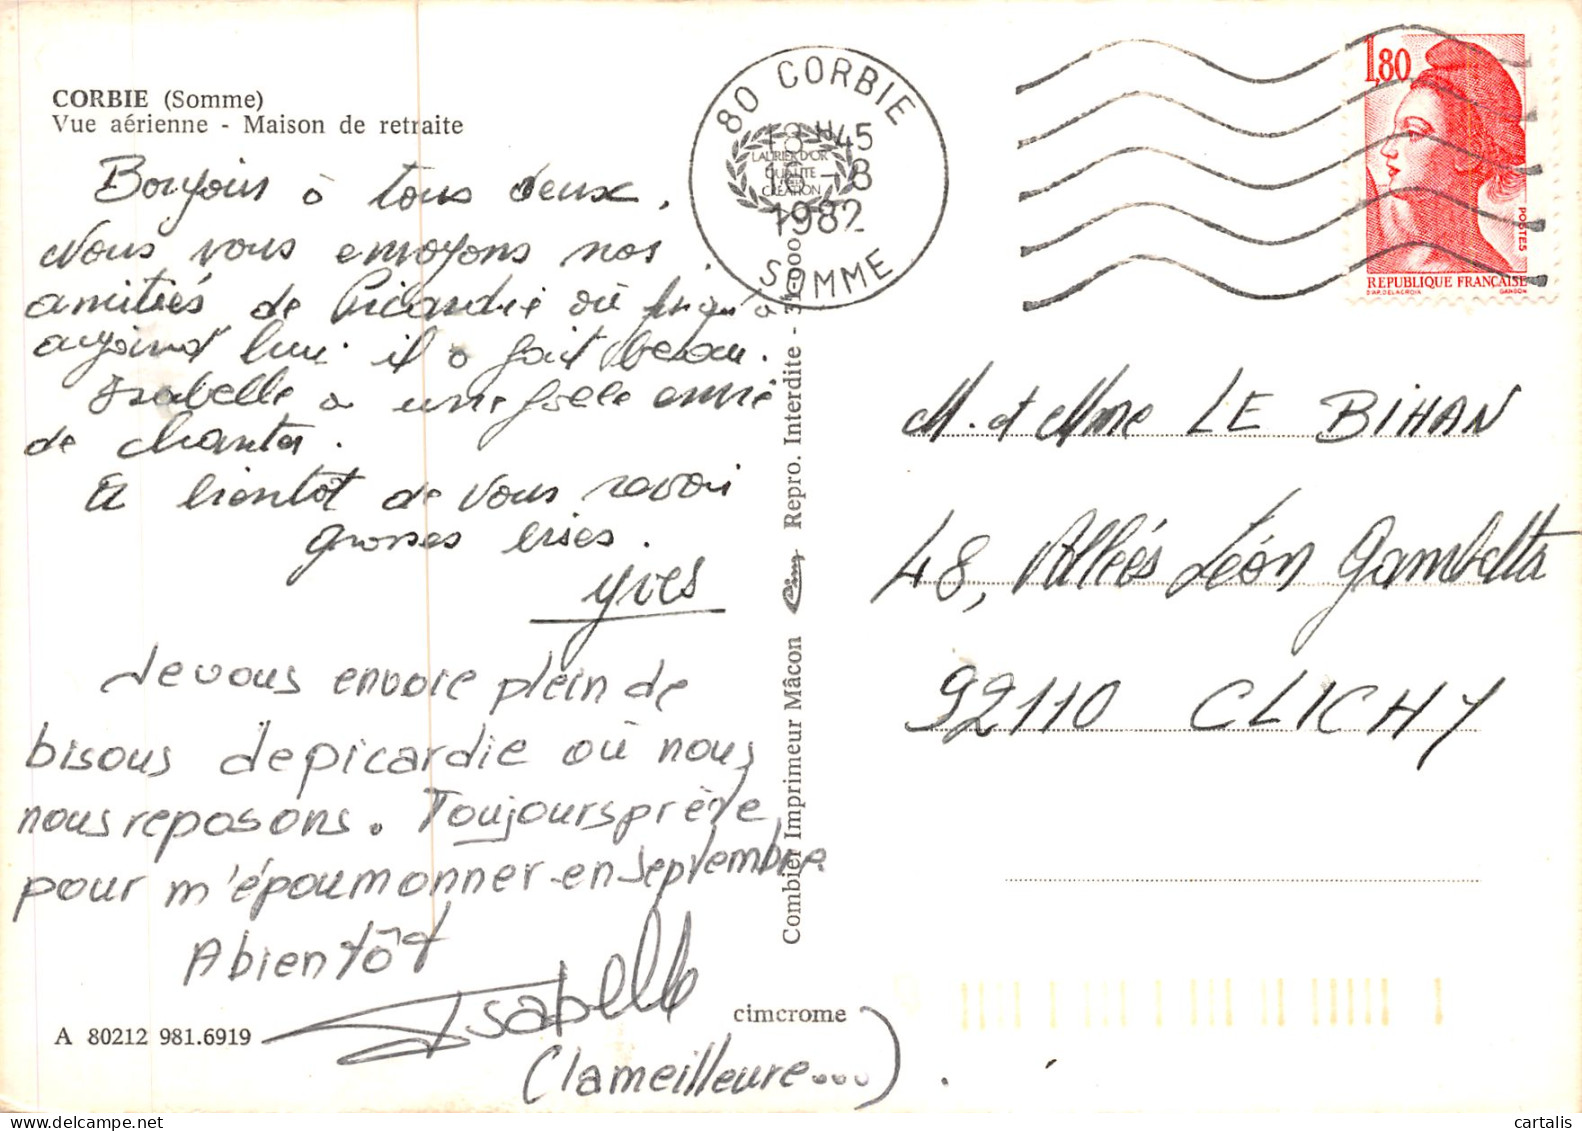 CORBIE (Somme)
Vue aérienne - Maison de retraite
Bonjour à tous deux.
Nous vous envoyons nos
amitiés de Picardie où jusqu'à
aujourd'hui il a fait beau.
Isabelle a une folle envie
de chanter.
A bientôt de vous revoir
grosses bises.
Yves
Je vous envoie plein de
bisous de picardie où nous
nous reposons. Toujours prête
pour m'époumonner en septembre
A bientôt
Isabelle
(la meilleure....)
A 80212 981.6919
cimcrome
Combier Imprimeur Mâcon Cim Repro. Interdite -
80 CORBIE
H45
1982
SOMME
LAURIER D'OR
QUALITE
CREATION
1,80
POSTES
REPUBLIQUE FRANÇAISE
D'AP. DELACROIX GANDON
M. et Mme LE BIHAN
48, Allées Léon Gambetta
92110 CLICHY
cartalis